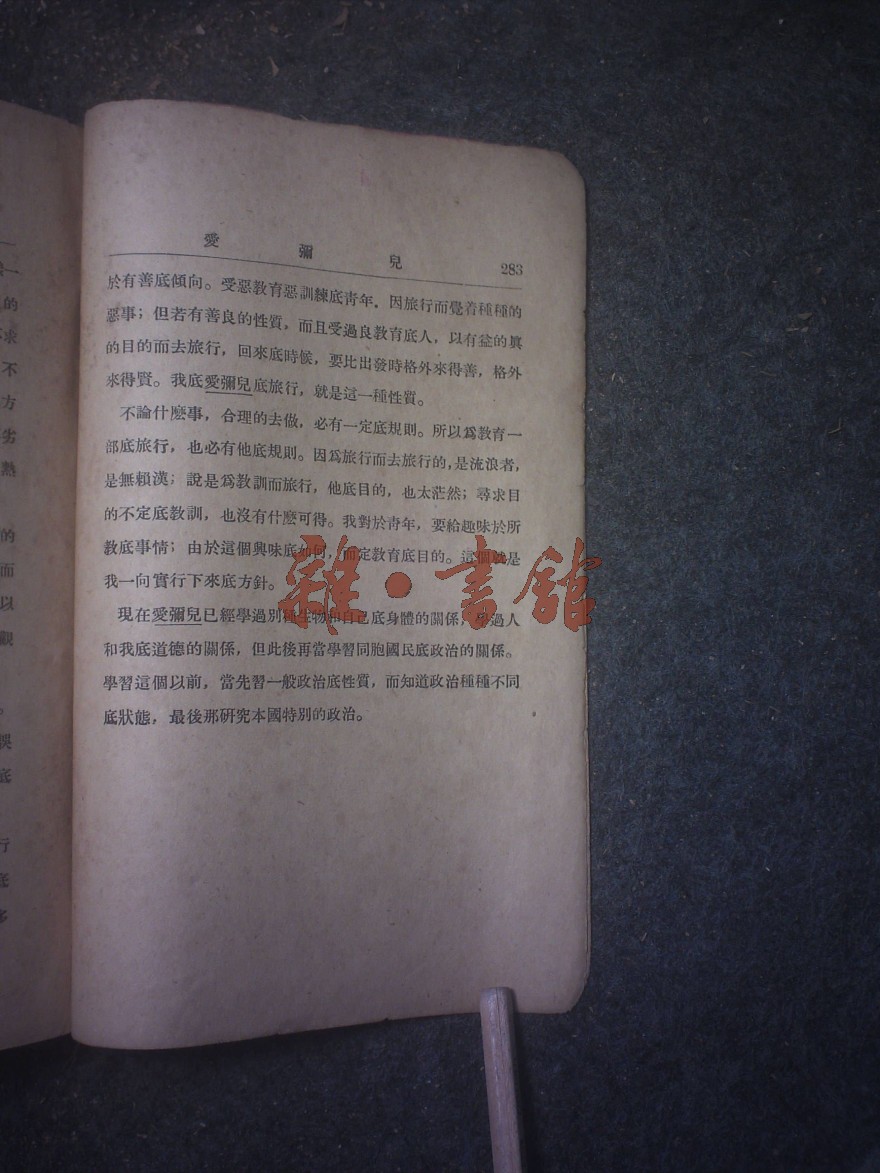 愛彌兒 283
於有善底傾向。受惡教育惡訓練底靑年，因旅行而覺着種種的
惡事；但若有善良的性質，而且受過良教育底人，以有益的眞
的目的而去旅行，回來底時候，要比出發時格外來得善，格外
來得賢。我底愛彌兒底旅行，就是這一種性質。
不論什麽事，合理的去做，必有一定底規則。所以爲教育一
部底旅行，也必有他底規則。因爲旅行而去旅行的，是流浪者，
是無賴漢；說是爲教訓而旅行，他底目的，也太茫然；尋求目
的不定底教訓，也沒有什麽可得。我對於靑年，要給趣味於所
教底事情；由於這個興味底如何，而定教育底目的。這個就是
我一向實行下來底方針。
現在愛彌兒已經學過別種生物和自己底身體的關係，學過人
和我底道德的關係，但此後再當學習同胞國民底政治的關係。
學習這個以前，當先習一般政治底性質，而知道政治種種不同
底狀態，最後那研究本國特別的政治。
雜·書館